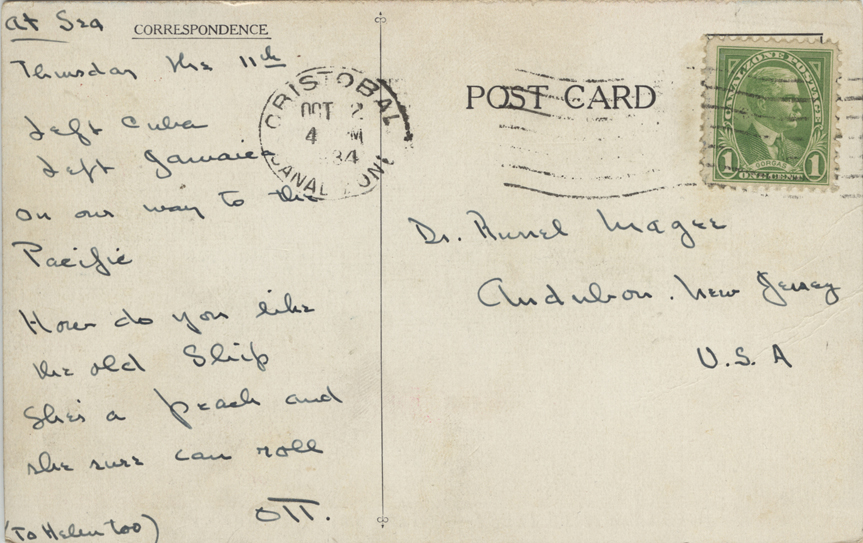 At Sea
CORRESPONDENCE
Thursday the 11th.
Left Cuba
Left Jamaica
on our way to the
Pacific
How do you like
the old Ship
She's a peach and
she sure can roll
OTT.
(To Helen too)
CRISTOBAL
OCT 2
4 M
34
CANAL ZONE
POST CARD
CANAL ZONE POSTAGE
GORGAS
1 1
ONE CENT
Dr. Russel Magee
Audubon. New Jersey
U.S.A